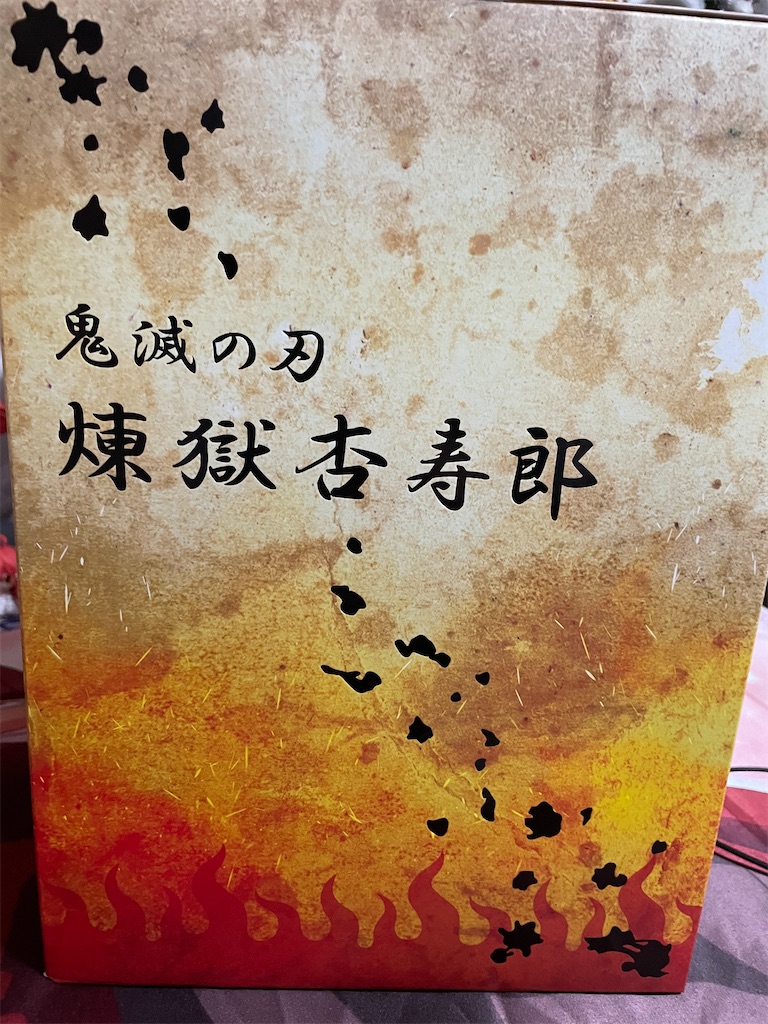 鬼滅の刃
煉獄杏寿郎